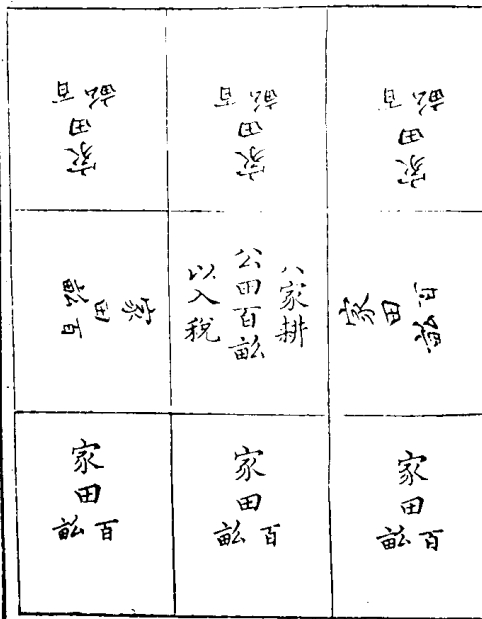 家田百畝
家田百畝
家田百畝
家田百畝
八家耕
公田百畝
以入稅
家田百畝
家田百畝
家田百畝
家田百畝